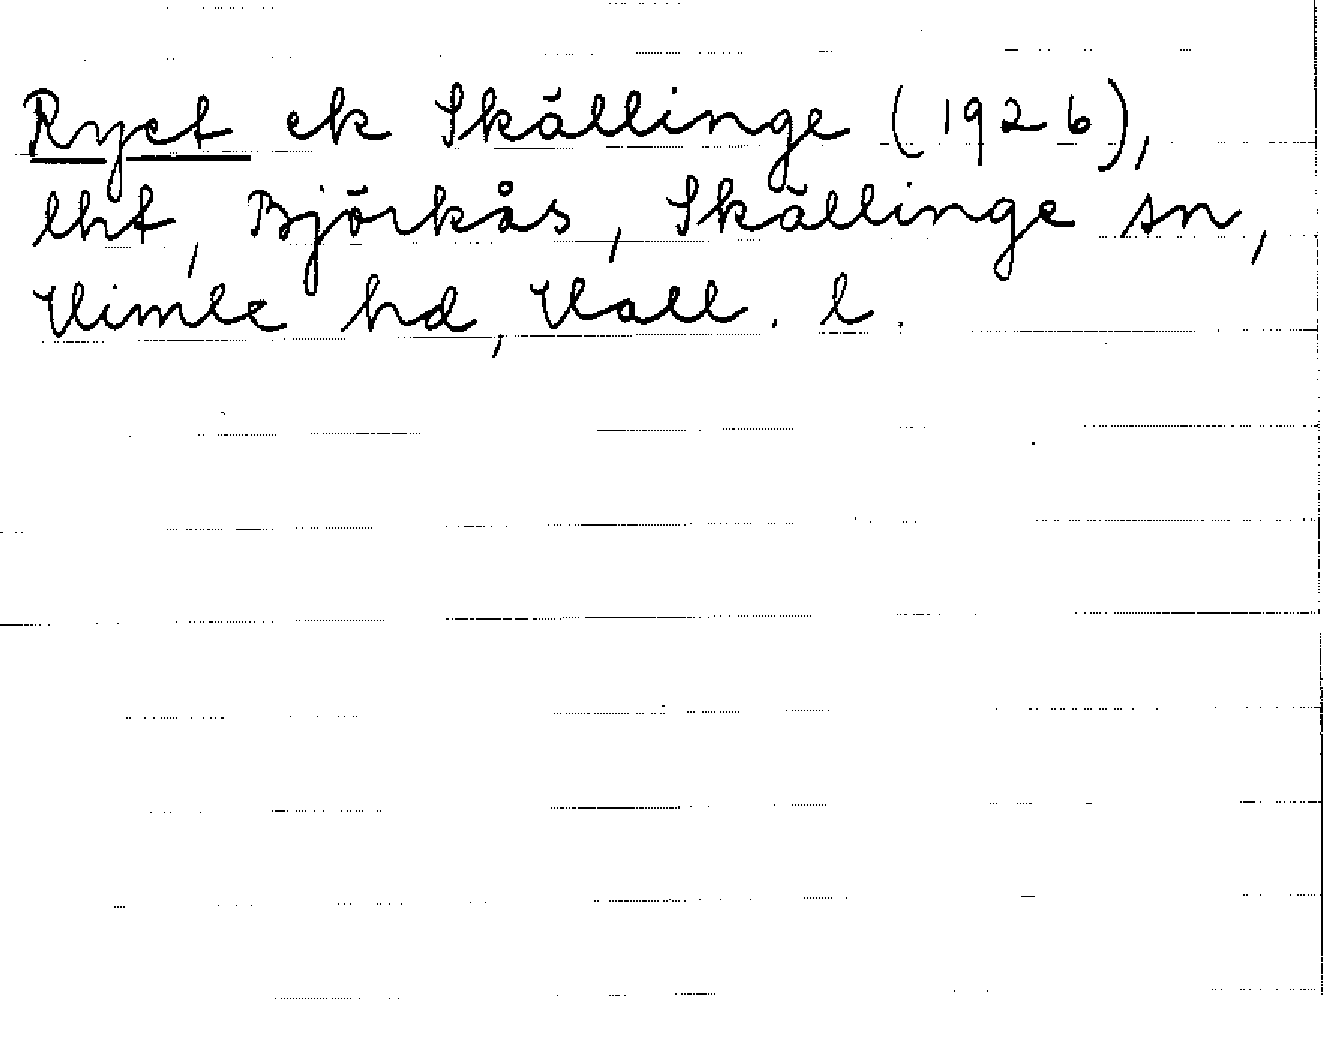 Ryet ek Skällinge (1926),
lht, Björkås, Skällinge sn,
Vimle hd, Vall. l.